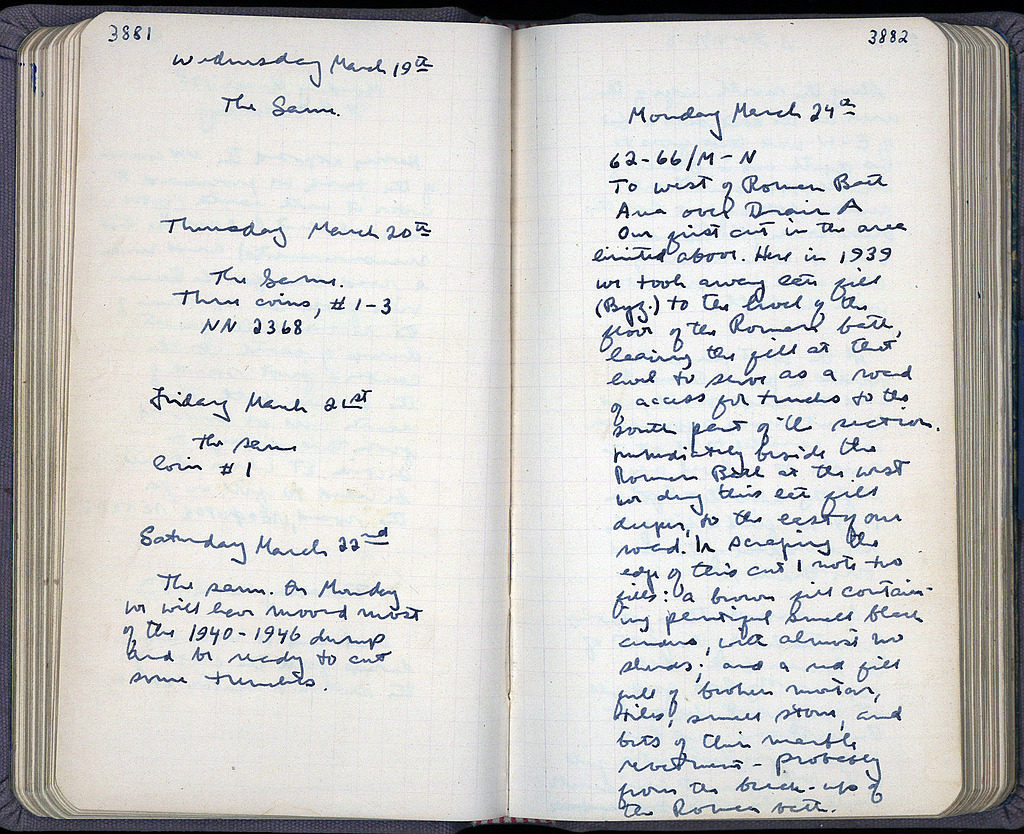 3881
Wednesday March 19th
The Same.
Thursday March 20th
The Same.
Three coins, #1-3
NN 2368
Friday March 21st
The same
Coin #1
Saturday March 22nd
The same. On Monday
we will have moved most
of the 1940-1946 dump
and be ready to cut
some trenches.
3882
Monday March 24th
62-66/M-N
To west of Roman Bath
Area over Drain A
Our first cut in the area
limited above. Here in 1939
we took away late fill
(Byz.) to the level of the
floor of the Roman bath,
leaving the fill at that
level to serve as a road
of access for trucks to the
south part of the section.
Immediately beside the
Roman Bath at the west
we dug this late fill
deeper, to the east of our
road. In scraping the
edge of this cut I note two
fills: a brown fill contain-
ing plentiful small black
cinders, with almost no
sherds; and a red fill
full of broken mortar,
tiles, small stone, and
bits of thin marble
revetment - probably
from the break-up of
the Roman bath.